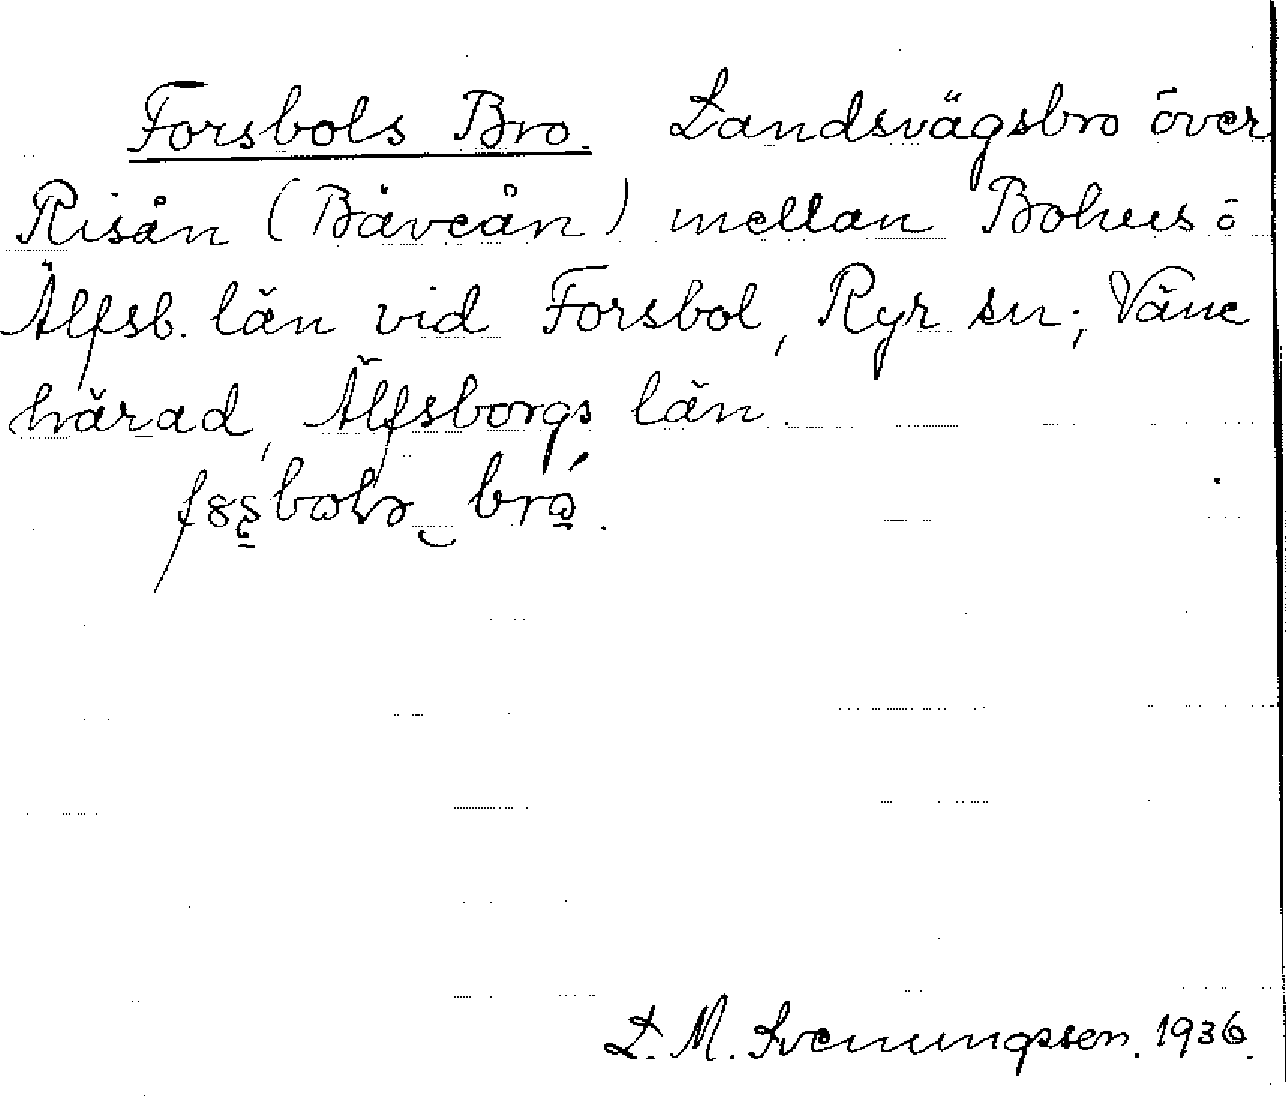 Forsbols Bro. Landsvägsbro över
Risån (Bäveån) mellan Bohus o
Älfsb. län vid Forsbol, Ryr sn; Väne
härad, Älfsborgs län.
L. M. Svenungsson. 1936.